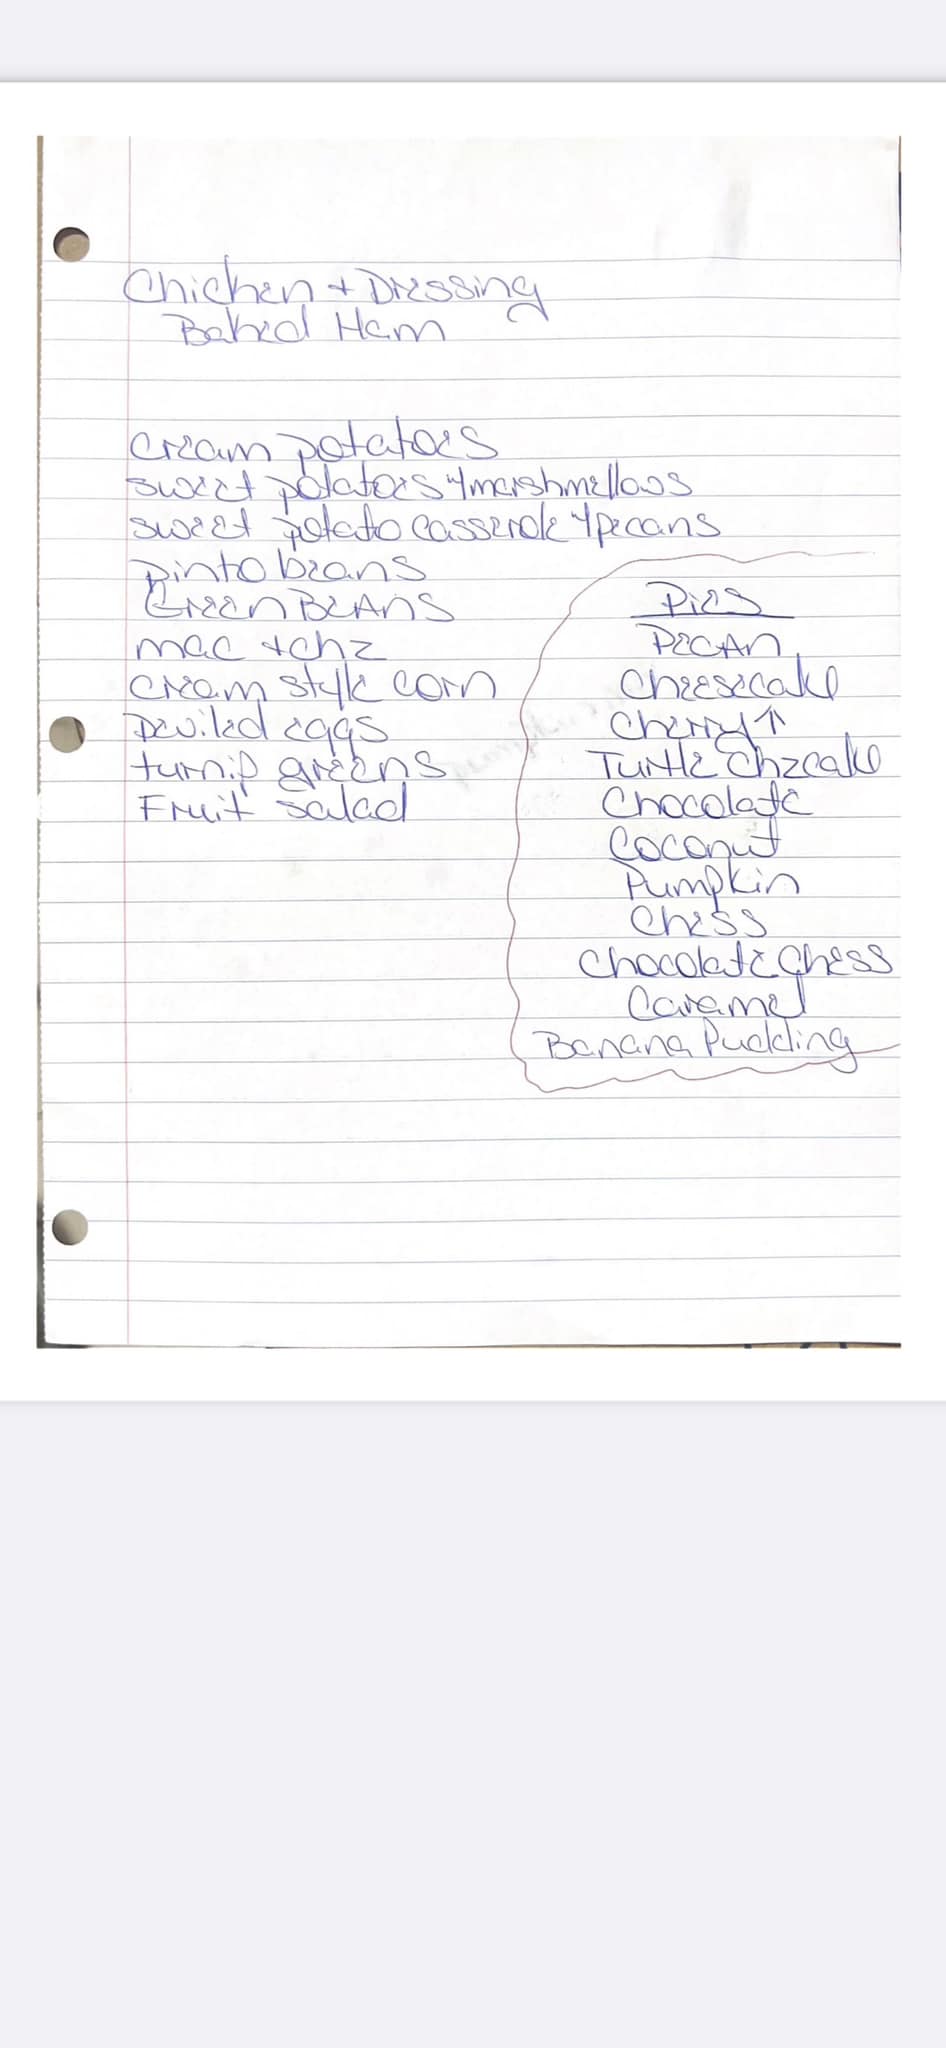 Chicken + Dressing
Baked Ham
Cream potatoes
sweet potatoes w/marshmellows
sweet potato casserole w/pecans
pinto beans
Green BEANS
mac + chz
cream style corn
Deviled eggs
turnip greens
Fruit salad
Pies
PECAN
Cheesecake
Cherry ↑
Turtle Chzcake
Chocolate
Coconut
Pumpkin
Chess
Chocolate Chess
Caramel
Banana Pudding